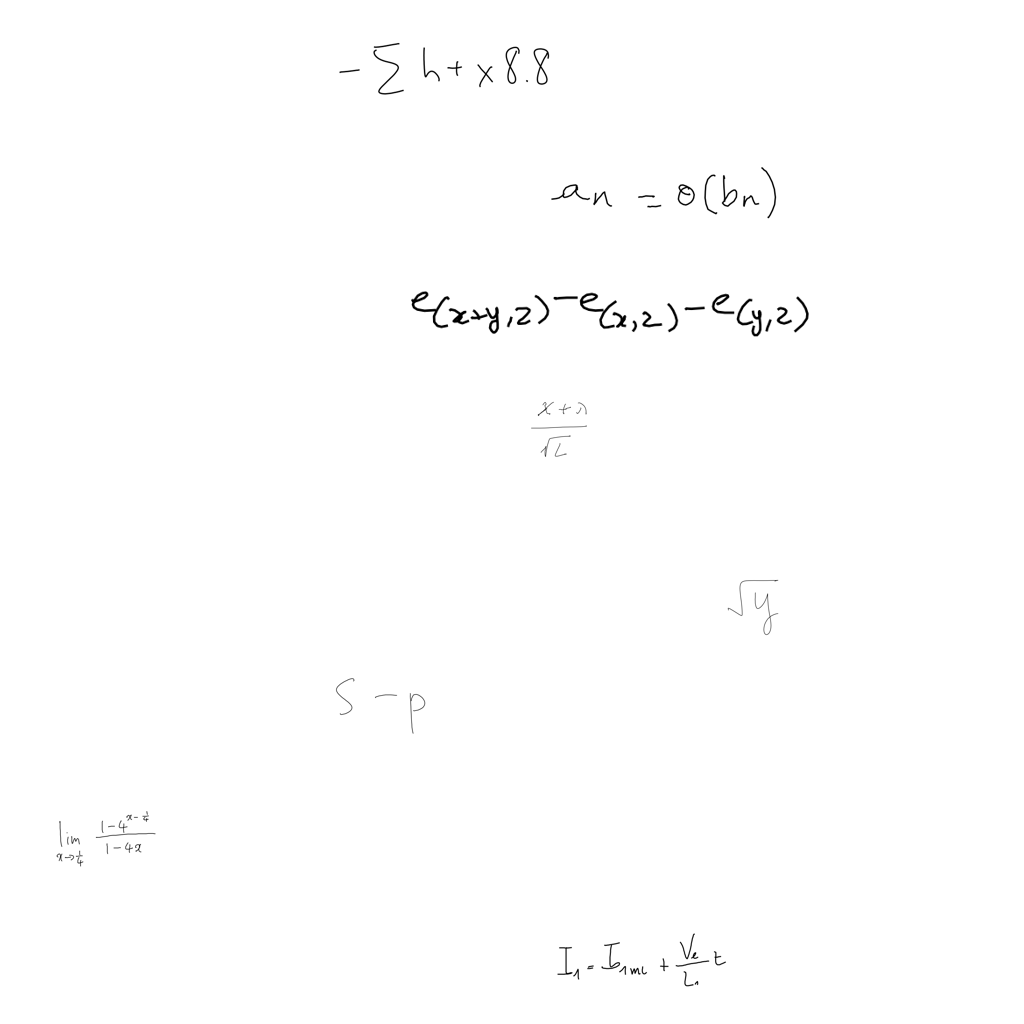 -∑ h + x 8.8
an = o(bn)
e_{(x+y,z)} - e_{(x,z)} - e_{(y,z)}
\frac{x+λ}{\sqrt{L}}
√y
S - p
\lim_{x→\frac{1}{4}} \frac{1-4^{x-\frac{1}{4}}}{1-4x}
I_1 = I_{1mc} + \frac{V_e}{L_1} t